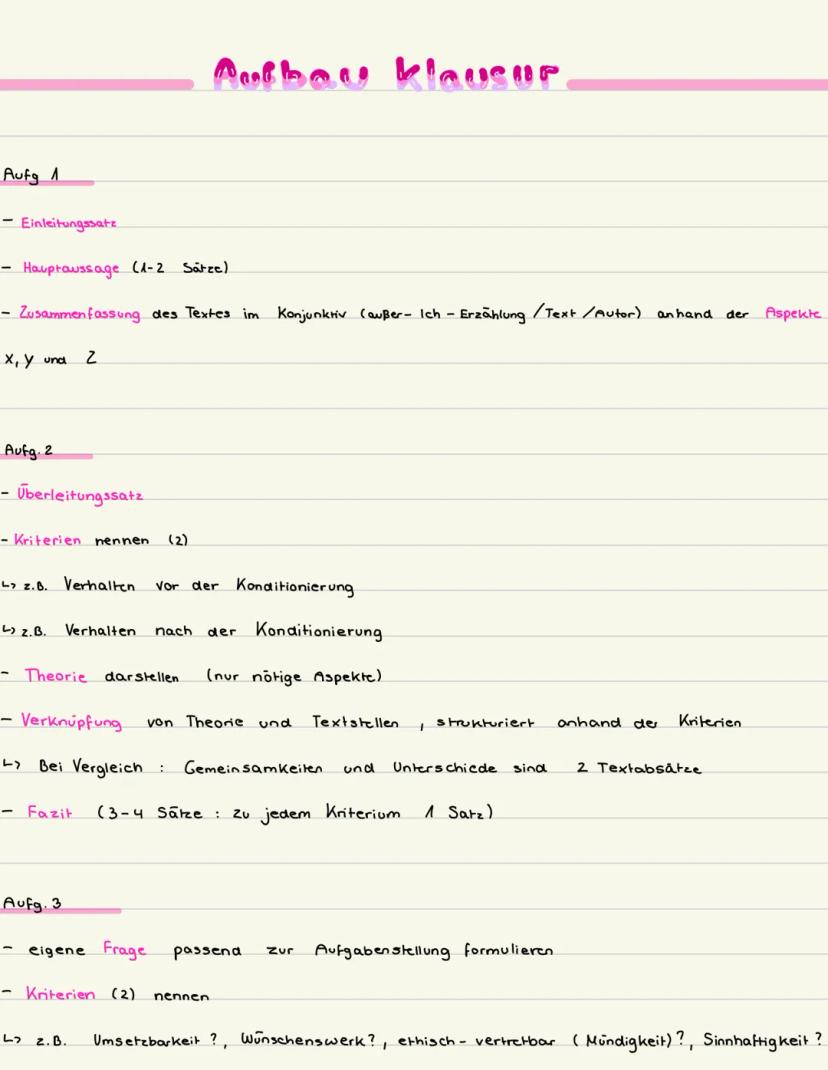 Aufbau Klausur
Aufg 1
- Einleitungssatz
- Hauptaussage (1-2 Sätze)
- Zusammenfassung des Textes im Konjunktiv (außer- Ich - Erzählung / Text / Autor) anhand der Aspekte
x, y und z
Aufg. 2
- Überleitungssatz
- Kriterien nennen (2)
↳ z.B. Verhalten vor der Konditionierung
↳ z.B. Verhalten nach der Konditionierung
- Theorie darstellen (nur nötige Aspekte)
- Verknüpfung von Theorie und Textstellen , strukturiert anhand der Kriterien
↳ Bei Vergleich : Gemeinsamkeiten und Unterschiede sind 2 Textabsätze
- Fazit (3-4 Sätze : zu jedem Kriterium 1 Satz)
Aufg. 3
- eigene Frage passend zur Aufgabenstellung formulieren
- Kriterien (2) nennen
↳ z.B. Umsetzbarkeit ?, Wünschenswerk?, ethisch - vertretbar ( Mündigkeit)?, Sinnhaftigkeit ?